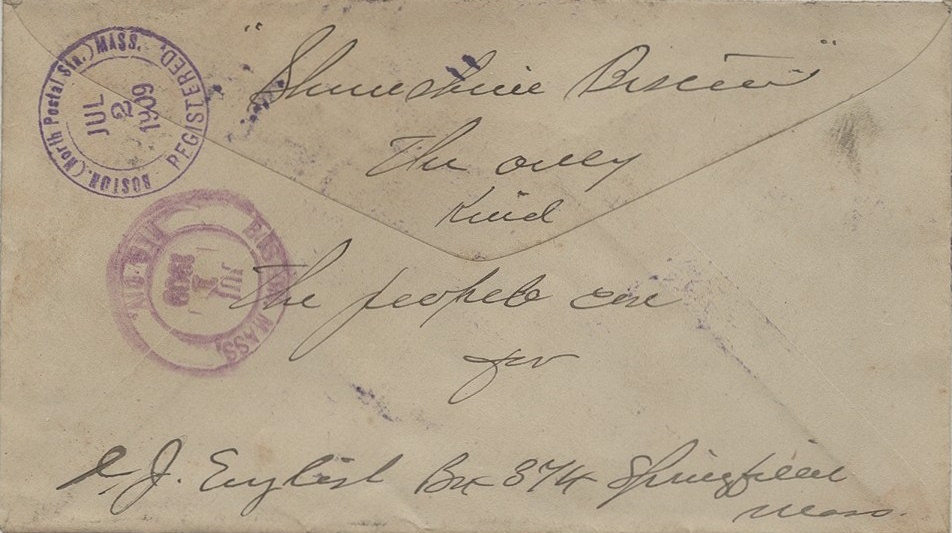 BOSTON, (North Postal Sta.) MASS.
REGISTERED.
JUL
2
1909
BOSTON, MASS.
JUL
1
1909
"Shunshine Biscuit"
The only
Kind
The people are
for
J. English Box 374 Springfield
Mass.